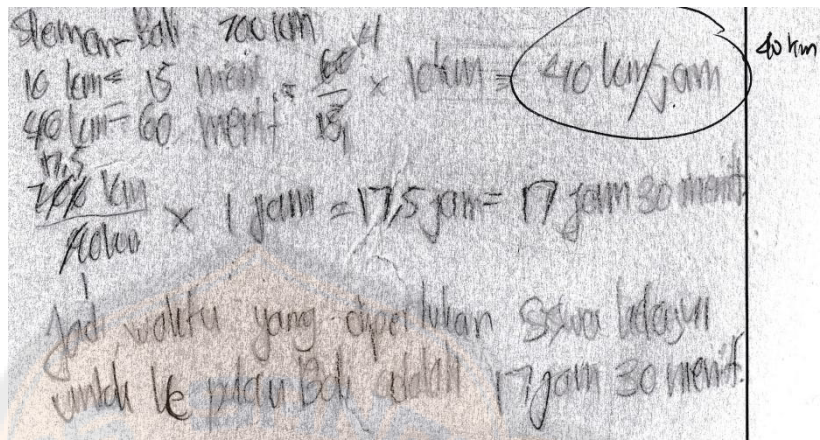 Sleman-Bali = 700 km
10 km = 15 menit = 60 4 / 15 1 × 10 km = 40 km/jam
40 km = 60 menit
40 km
17,5
700 km / 40 km × 1 jam = 17,5 jam = 17 jam 30 menit.
1
Jadi waktu yang diperlukan siswa
untuk ke pulau Bali adalah 17 jam 30 menit.